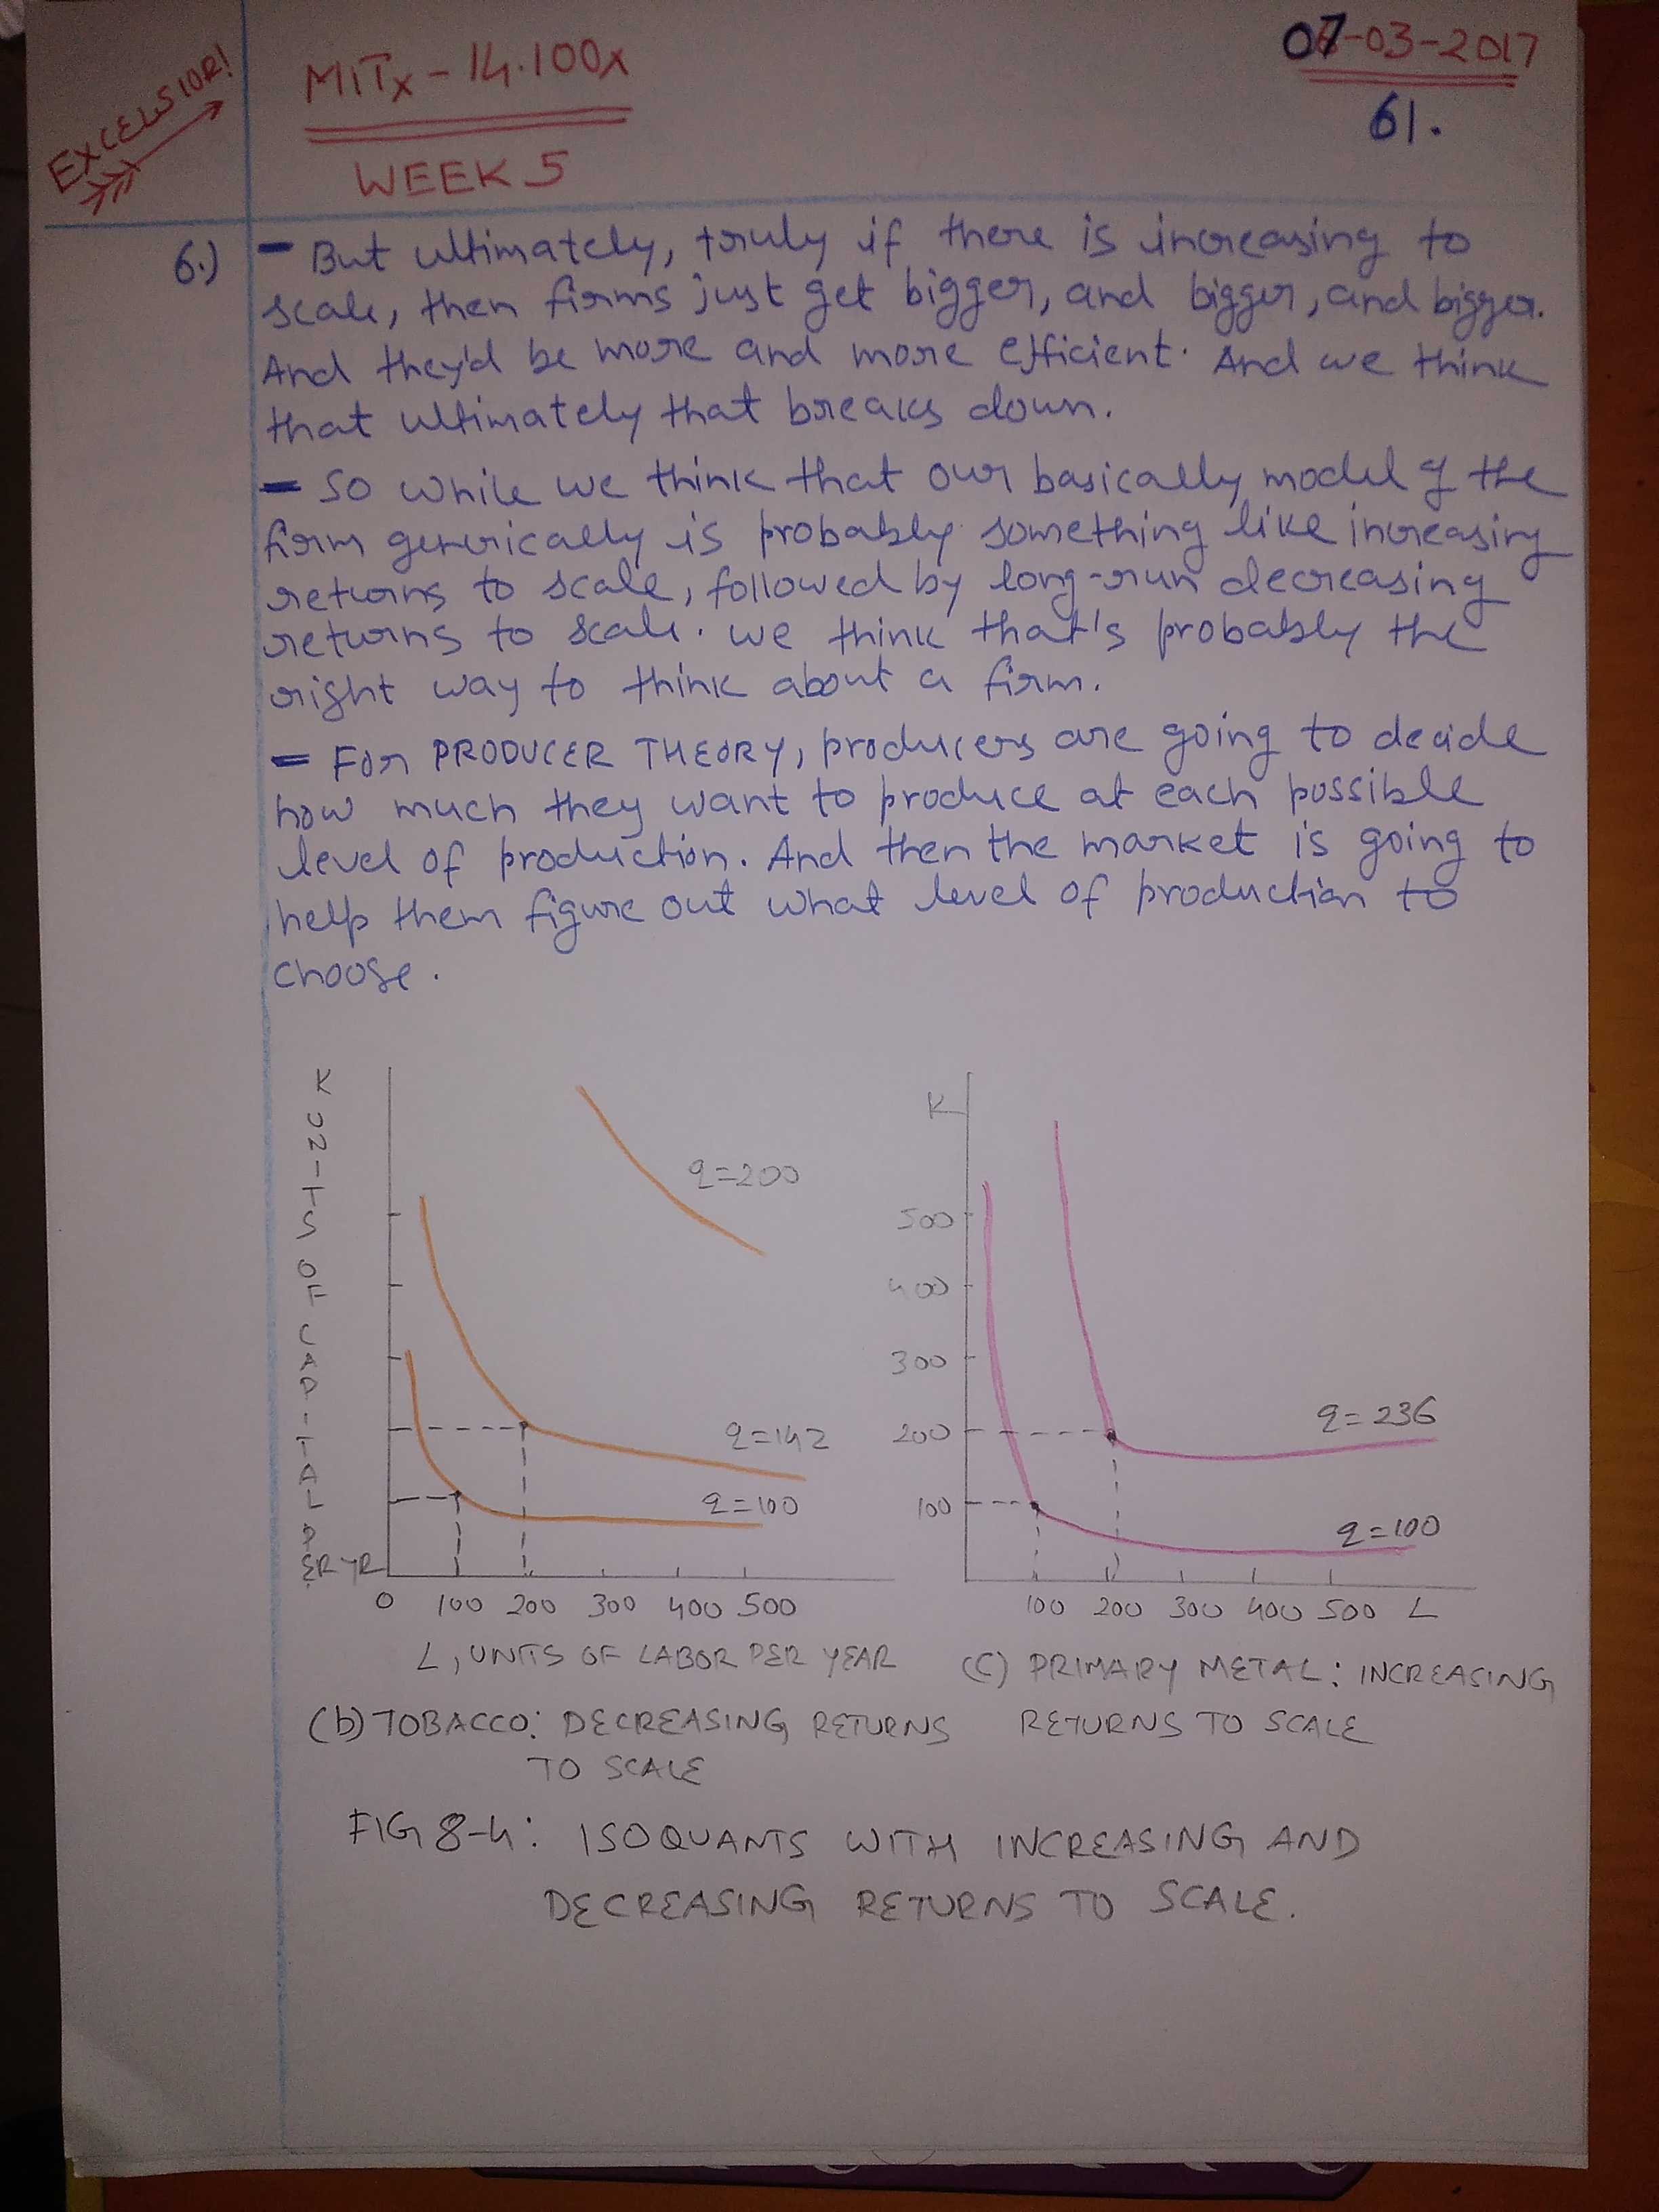 EXCELSIOR!
MITx - 14.100x
WEEK 5
07-03-2017
61.
6.) - But ultimately, truly if there is increasing to
scale, then firms just get bigger, and bigger, and bigger.
And they'd be more and more efficient. And we think
that ultimately that breaks down.
- So while we think that our basically model of the
firm generically is probably something like increasing
returns to scale, followed by long-run decreasing
returns to scale. we think that's probably the
right way to think about a firm.
- For PRODUCER THEORY, producers are going to decide
how much they want to produce at each possible
level of production. And then the market is going to
help them figure out what level of production to
choose.
K UNITS OF CAPITAL PER YR
q=200
q=142
q=100
0 100 200 300 400 500
L, UNITS OF LABOR PER YEAR
(b) TOBACCO: DECREASING RETURNS
TO SCALE
K
500
400
300
200
100
q=236
q=100
100 200 300 400 500 L
(C) PRIMARY METAL: INCREASING
RETURNS TO SCALE
FIG 8-4: ISOQUANTS WITH INCREASING AND
DECREASING RETURNS TO SCALE.